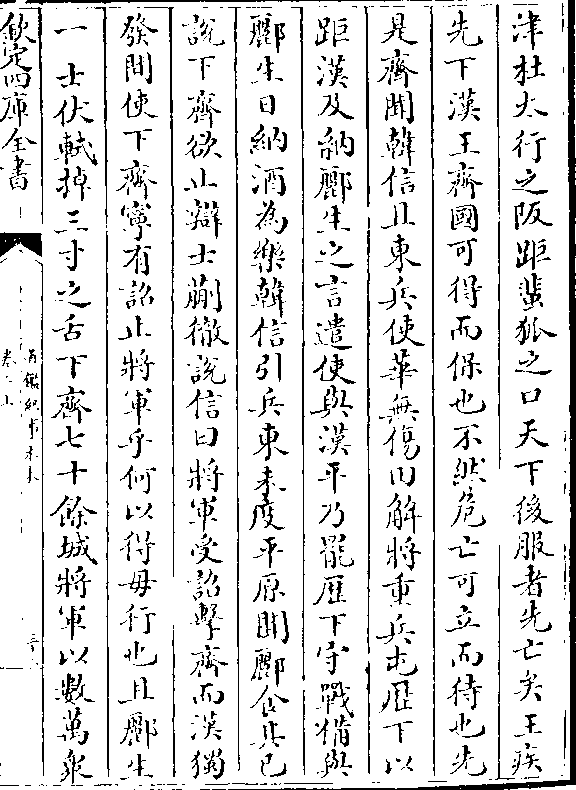 津杜太行之阪距蜚狐之口天下後服者先亡矣王疾
先下漢王齊國可得而保也不然危亡可立而待也先
是齊聞韓信且東兵使華無傷田解將重兵屯厯下以
距漢及納酈生之言遣使與漢平乃罷厯下守戰備與
酈生日納酒為樂韓信引兵東未度平原聞酈食其已
說下齊欲止辯士蒯徹說信曰將軍受詔擊齊而漢獨
發間使下齊寧有詔止將軍乎何以得毋行也且酈生
一士伏軾掉三寸之舌下齊七十餘城將軍以數萬衆
欽定四庫全書
通鑑紀事本末
卷二上